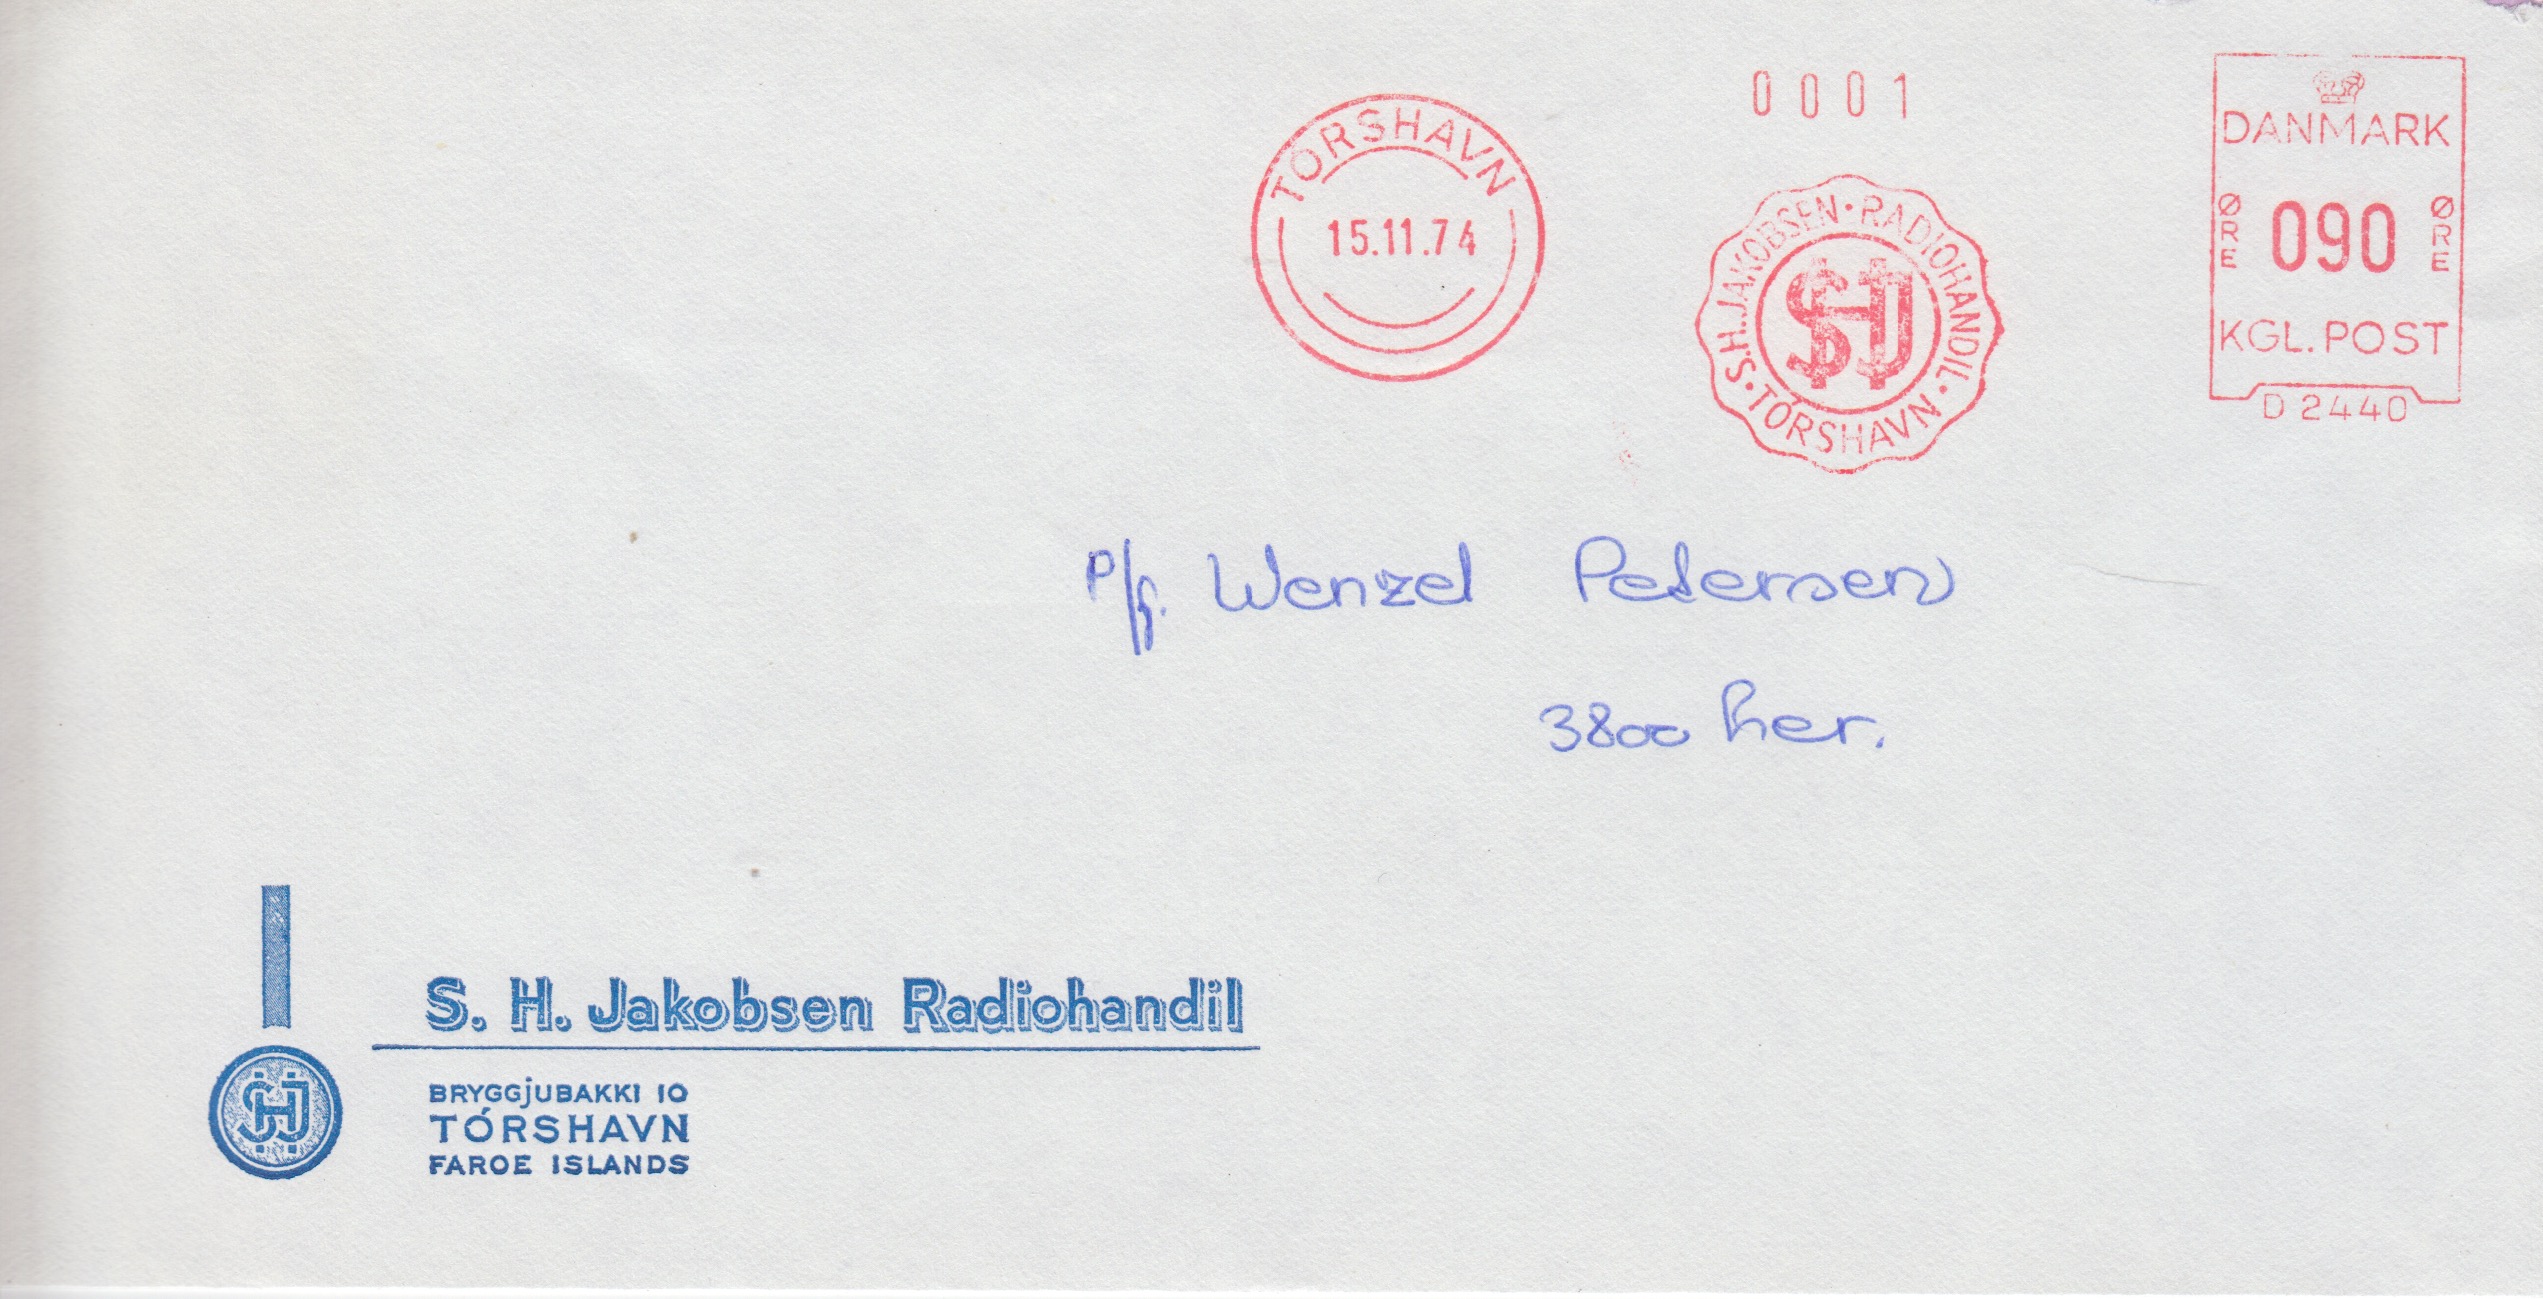 TÓRSHAVN
15.11.74
0001
S.H.JAKOBSEN·RADIOHANDIL·TÓRSHAVN·
SHJ
DANMARK
ØRE 090 ØRE
KGL. POST
D 2440
P/f. Wenzel Petersen
3800 her.
S. H. Jakobsen Radiohandil
SHJ
BRYGGjUBAKKI 10
TÓRSHAVN
FAROE ISLANDS